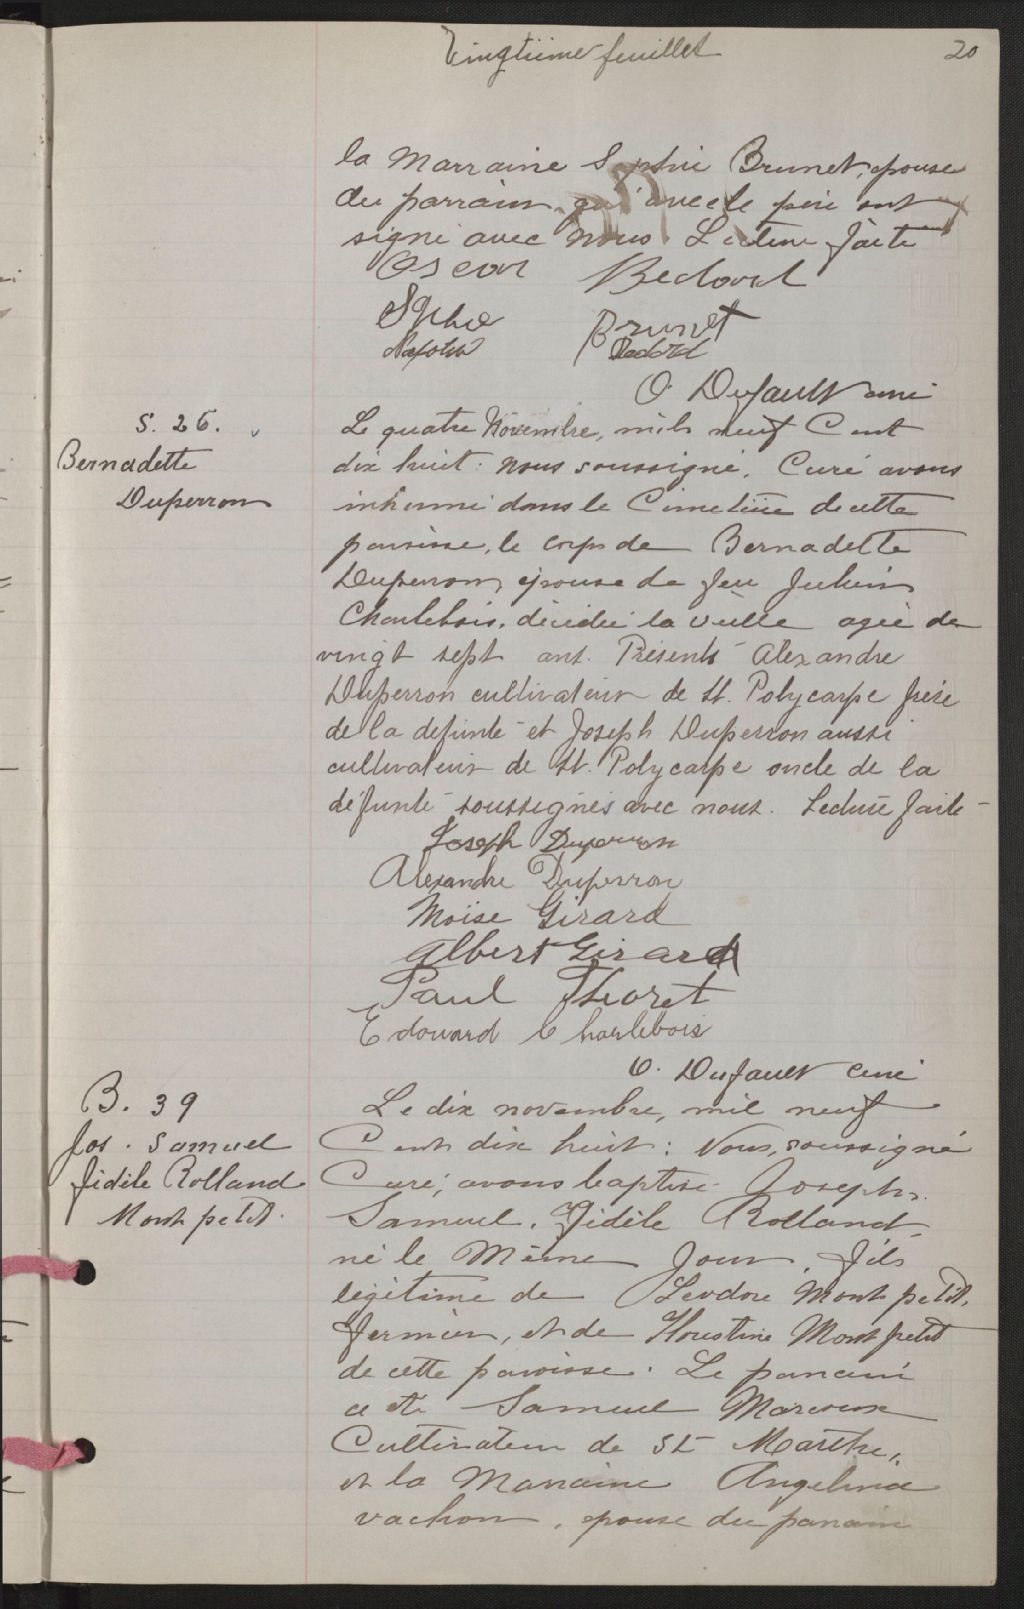 Vingtième feuillet 20
la Marraine Sophie Brunet, épouse
du parrain qui avec le père ont
signé avec nous. Lecture faite
Oscar Bedard
Sophie Brunet
Bedard
O. Dufault curé
S. 26.
Bernadette
Duperron
Le quatre Novembre, mil neuf Cent
dix huit: nous soussigné, Curé avons
inhumé dans le Cimetière de cette
paroisse, le corps de Bernadette
Duperron, épouse de feu Julien
Charlebois, décédée la veille agée de
vingt sept ans. Présents Alexandre
Duperron cultivateur de St. Polycarpe frère
de la defunte et Joseph Duperron aussi
cultivateur de St. Polycarpe oncle de la
défunte soussignés avec nous. Lecture faite
Joseph Duperron
Alexandre Duperron
Moïse Girard
Albert Girard
Paul Thoret
Edouard Charlebois
O. Dufault curé
B. 39
Jos. Samuel
Fidèle Rolland
Montpetit.
Le dix novembre, mil neuf
Cent dix huit: Nous, soussigné
Curé, avons baptisé Joseph,
Samuel, Fidèle Rolland
né le Même Jour, fils
légitime de Montpetit,
fermier, et de Montpetit
de cette paroisse. Le parrain
a été Samuel Marcoux
Cultivateur de St Marthe,
et la Marraine Angelina
vachon, épouse du parrain